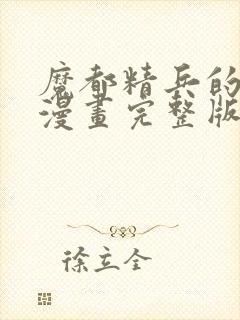 魔都精兵的
漫畫完整版
徐立全